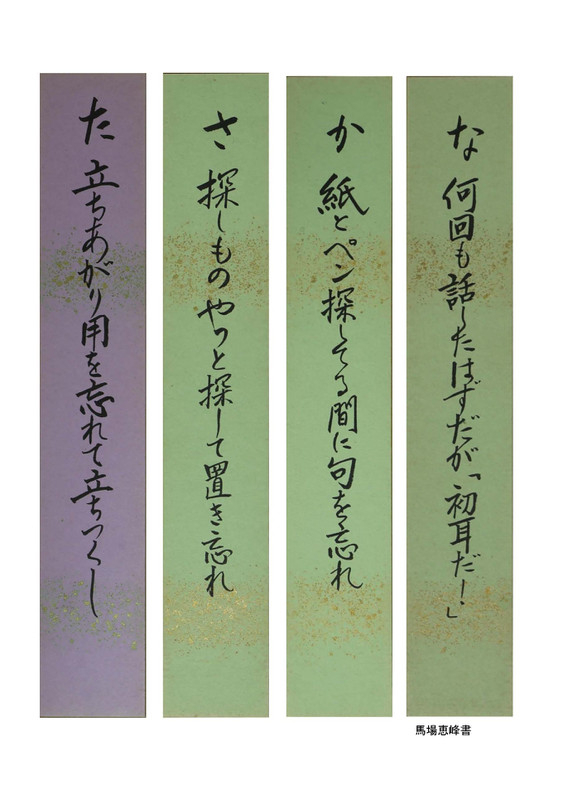 な 何回も話したはずだが「初耳だ！」
か 紙とペン探してる間に句を忘れ
さ 探しものやっと探して置き忘れ
た 立ちあがり用を忘れて立ちつくし
馬場恵峰書